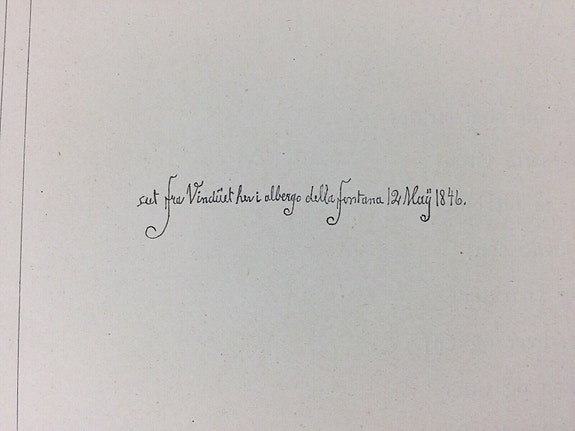 set fra Vindüet her i albergo della fontana 12 Maÿ 1846.